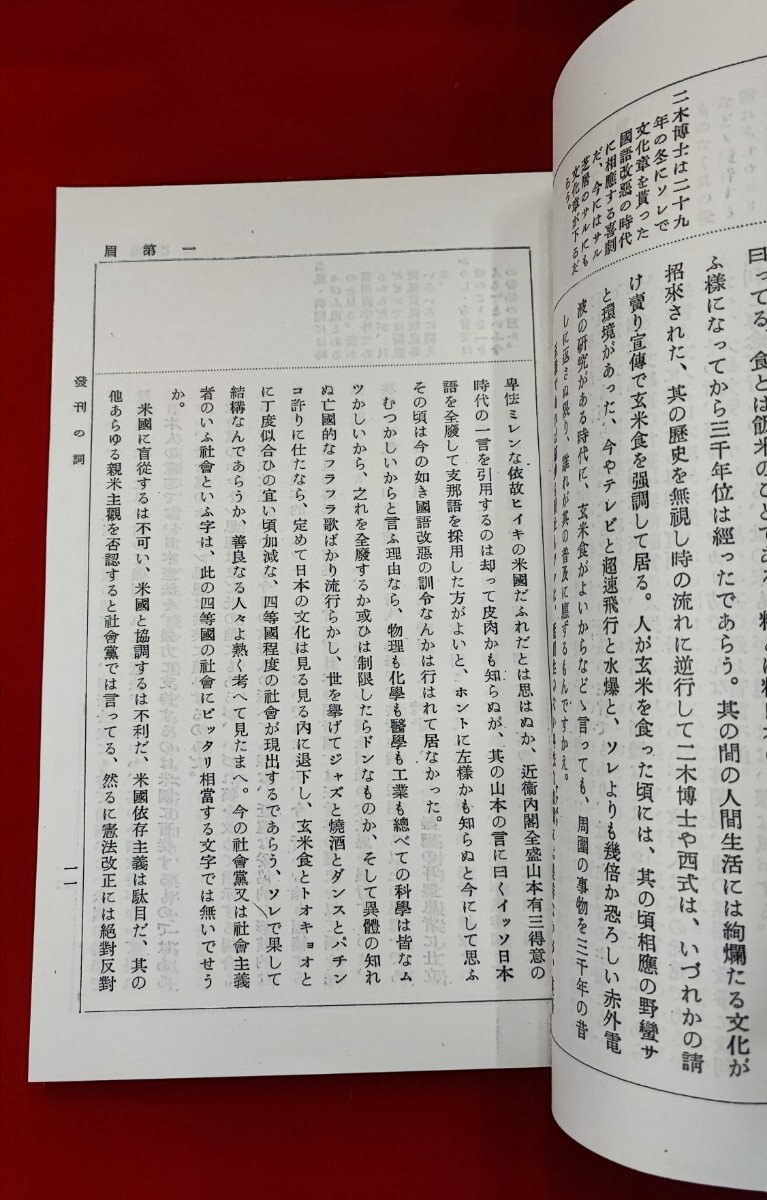 二木博士は二十九
年の冬にソレで
文化章を貰った
國語改惡の時代
に相應する喜劇
だ、今にはサル
芝居のサルにも
文化章が下るだ
らう。
曰ってる、食とは飯米のことである、
ふ樣になってから三千年位は經ったであらう。其の間の人間生活には絢爛たる文化が
招來された、其の歷史を無視し時の流れに逆行して二木博士や西式は、いづれかの請
け賣り宣傳で玄米食を强調して居る。人が玄米を食った頃には、其の頃相應の野蠻サ
と環境があった、今やテレビと超速飛行と水爆と、ソレよりも幾倍か恐ろしい赤外電
波の硏究がある時代に、玄米食がよいからなどゝ言っても、周圍の事物を三千年の昔
しに返さぬ限り、誰れが其の普及に應ずるもんですかえ。
第一眉
發刊の詞
一一
卑怯ミレンな依故ヒイキの米國だふれだとは思はぬか、近衞內閣全盛山本有三得意の
時代の一言を引用するのは却って皮肉かも知らぬが、其の山本の言に曰くイッソ日本
語を全廢して支那語を採用した方がよいと、ホントに左樣かも知らぬと今にして思ふ
その頃は今の如き國語改惡の訓令なんかは行はれて居なかった。
むつかしいからと言ふ理由なら、物理も化學も醫學も工業も總べての科學は皆なム
ツかしいから、之れを全廢するか或ひは制限したらドンなものか、そして異體の知れ
ぬ亡國的なフラフラ歌ばかり流行らかし、世を擧げてジャズと燒酒とダンスとパチン
コ許りに仕たなら、定めて日本の文化は見る見る內に退下し、玄米食とトオキョオと
に丁度似合ひの宜い頃加減な、四等國程度の社會が現出するであらう、ソレで果して
結構なんであらうか、善良なる人々よ熟く考へて見たまへ。今の社會黨又は社會主義
者のいふ社會といふ字は、此の四等國の社會にピッタリ相當する文字では無いでせう
か。
米國に盲從するは不可い、米國と協調するは不利だ、米國依存主義は駄目だ、其の
他あらゆる親米主觀を否認すると社會黨では言ってる、然るに憲法改正には絕對反對